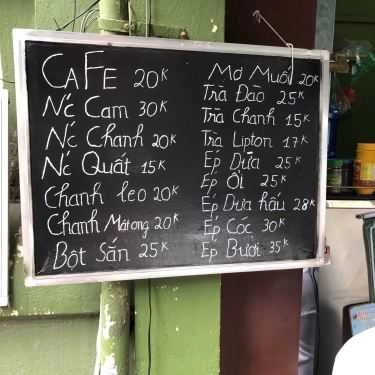 CAFE 20K
Nc Cam 30K
Nc Chanh 20K
Nc Quất 15K
Chanh leo 20K
Chanh Mật ong 20K
Bột Sắn 25K
Mơ Muối 20K
Trà Đào 25K
Trà Chanh 15K
Trà Lipton 17K
Ép Dứa 25K
Ép Ổi 25K
Ép Dưa hấu 28K
Ép Cóc 30K
Ép Bưởi 35K